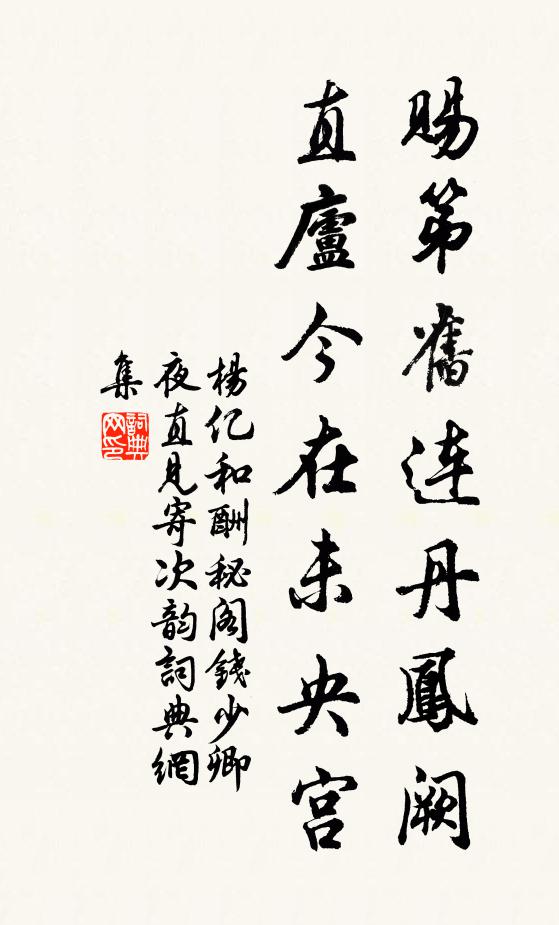 賜第舊連丹鳳闕
直廬今在未央宮
楊亿和酬秘閣錢少卿
夜直見寄次韵詞典網
集
詞典
网印